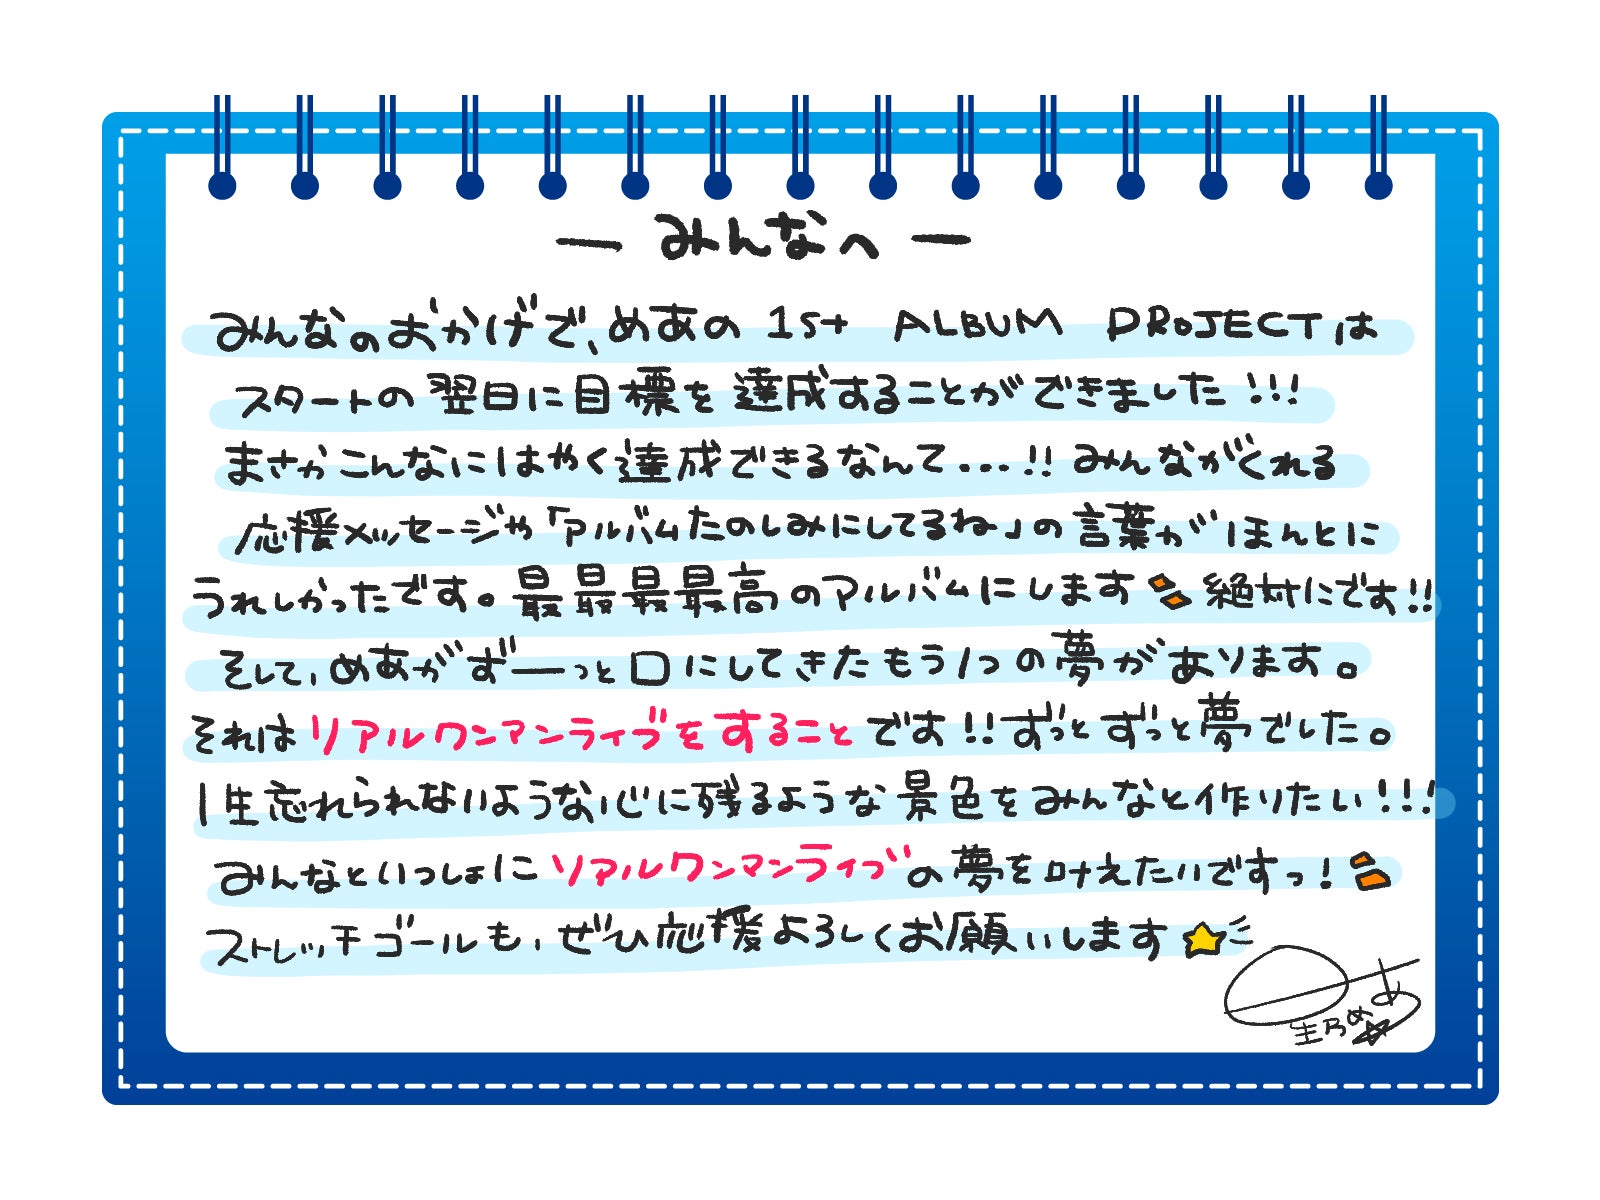 ― みんなへ ―
みんなのおかげで、めあの 1st ALBUM PROJECTは
スタートの翌日に目標を達成することができました!!!
まさかこんなにはやく達成できるなんて...!! みんながくれる
応援メッセージや「アルバムたのしみにしてるね」の言葉がほんとに
うれしかったです。最最最最高のアルバムにします 絶対にです!!
そして、めあがずーっと口にしてきたもう1つの夢があります。
それはリアルワンマンライブをすることです!!ずっとずっと夢でした。
1生忘れられないような心に残るような景色をみんなと作りたい!!!
みんなといっしょにリアルワンマンライブの夢を叶えたいですっ!
ストレッチゴールも、ぜひ応援よろしくお願いします